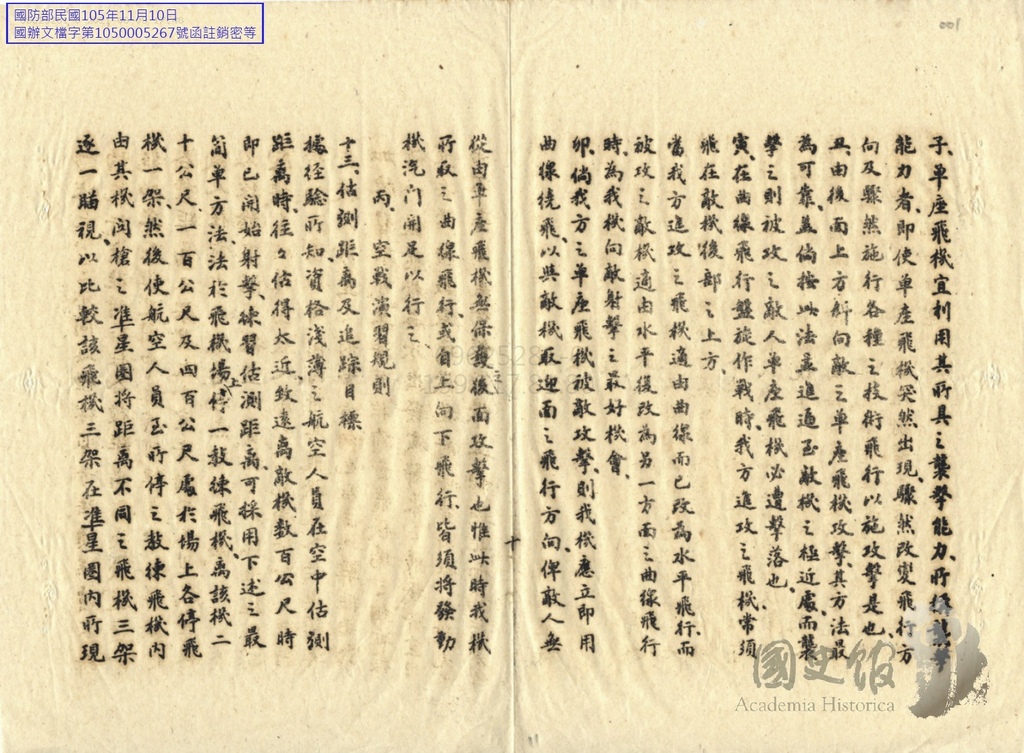 國防部民國105年11月10日
國辦文檔字第1050005267號函註銷密等
001
子、單座飛機宜利用其所具之襲擊能力、所謂襲擊
能力者、即使單座飛機突然出現、驟然改變飛行方
向及驟然施行各種之技術飛行以施攻擊是也、
丑、由後面上方斜向敵之單座飛機攻擊、其方法最
為可靠、蓋倘按此法並進逼至敵機之極近處、而襲
擊之則被攻之敵人單座飛機必遭擊落也、
寅、在曲線飛行盤旋作戰時、我方進攻之飛機常須
飛在敵機後部之上方、
當我方進攻之飛機適由曲線而已改為水平飛行、而
被攻之敵機適由水平復改為另一方面之曲線飛行
時、為我機向敵射擊之最好機會、
卯、倘我方之單座飛機被敵攻擊、則我機應立即用
曲線繞飛、以與敵機取迎面之飛行方向、俾敵人無
十
從由單座飛機無保護之後面攻擊也惟此時我機
所取之曲線飛行、或自上向下飛行、皆須將發動
機汽門開足以行之、
丙、空戰演習規則
十三、估測距离及追踪目標
據經驗所知、資格淺薄之航空人員在空中估測
距离時、往々估得太近、致遠离敵機数百公尺時
即已開始射擊、練習估測距离、可採用下述之最
简單方法、法於飛機場上停一教練飛機、离該機二
十公尺、一百公尺及四百公尺處於場上各停飛
機一架、然後使航空人員至所停之教練飛機內
由其機関槍之準星圈將距离不同之飛機三架
逐一瞄視、以比較該飛機三架在準星圈內所現
國史館
Academia Historica
11